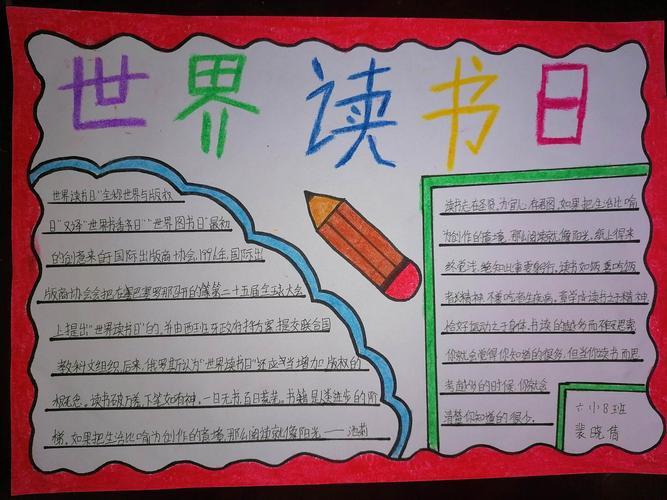 世界读书日
世界读书日"全称世界与版权
日"又译"世界书香日""世界图书日"最初
的创意来自于国际出版商协会.1994年.国际出
版商协会会把在巴塞罗那召开的第二十五届全球大会
上提出"世界读书日"的.并由西班牙政府将方案.提交联合国
教科文组织.后来.俄罗斯认为"世界读书日"还应当增加版权的
概念。读书破万卷.下笔如有神.一日无书.百日荒芜。书籍是进步的阶
梯.如果把生活比喻为创作的意境.那么阅读就像阳光——池莉
读书志在圣贤.为官心存君国.如果把生活比喻
为创作的意境.那么阅读就像阳光.纸上得来
终觉浅.绝知此事要躬行.读书如饭.善吃饭
者长精神.不善吃者生疾病.育学成读书之于精神.
恰好运动之于身体.书读的越多而不加思索.
你就会觉得你知道的很多.但当你读书而思
考越多的时候.你就会
清楚你知道的很少.
六小8班
裴晓倩